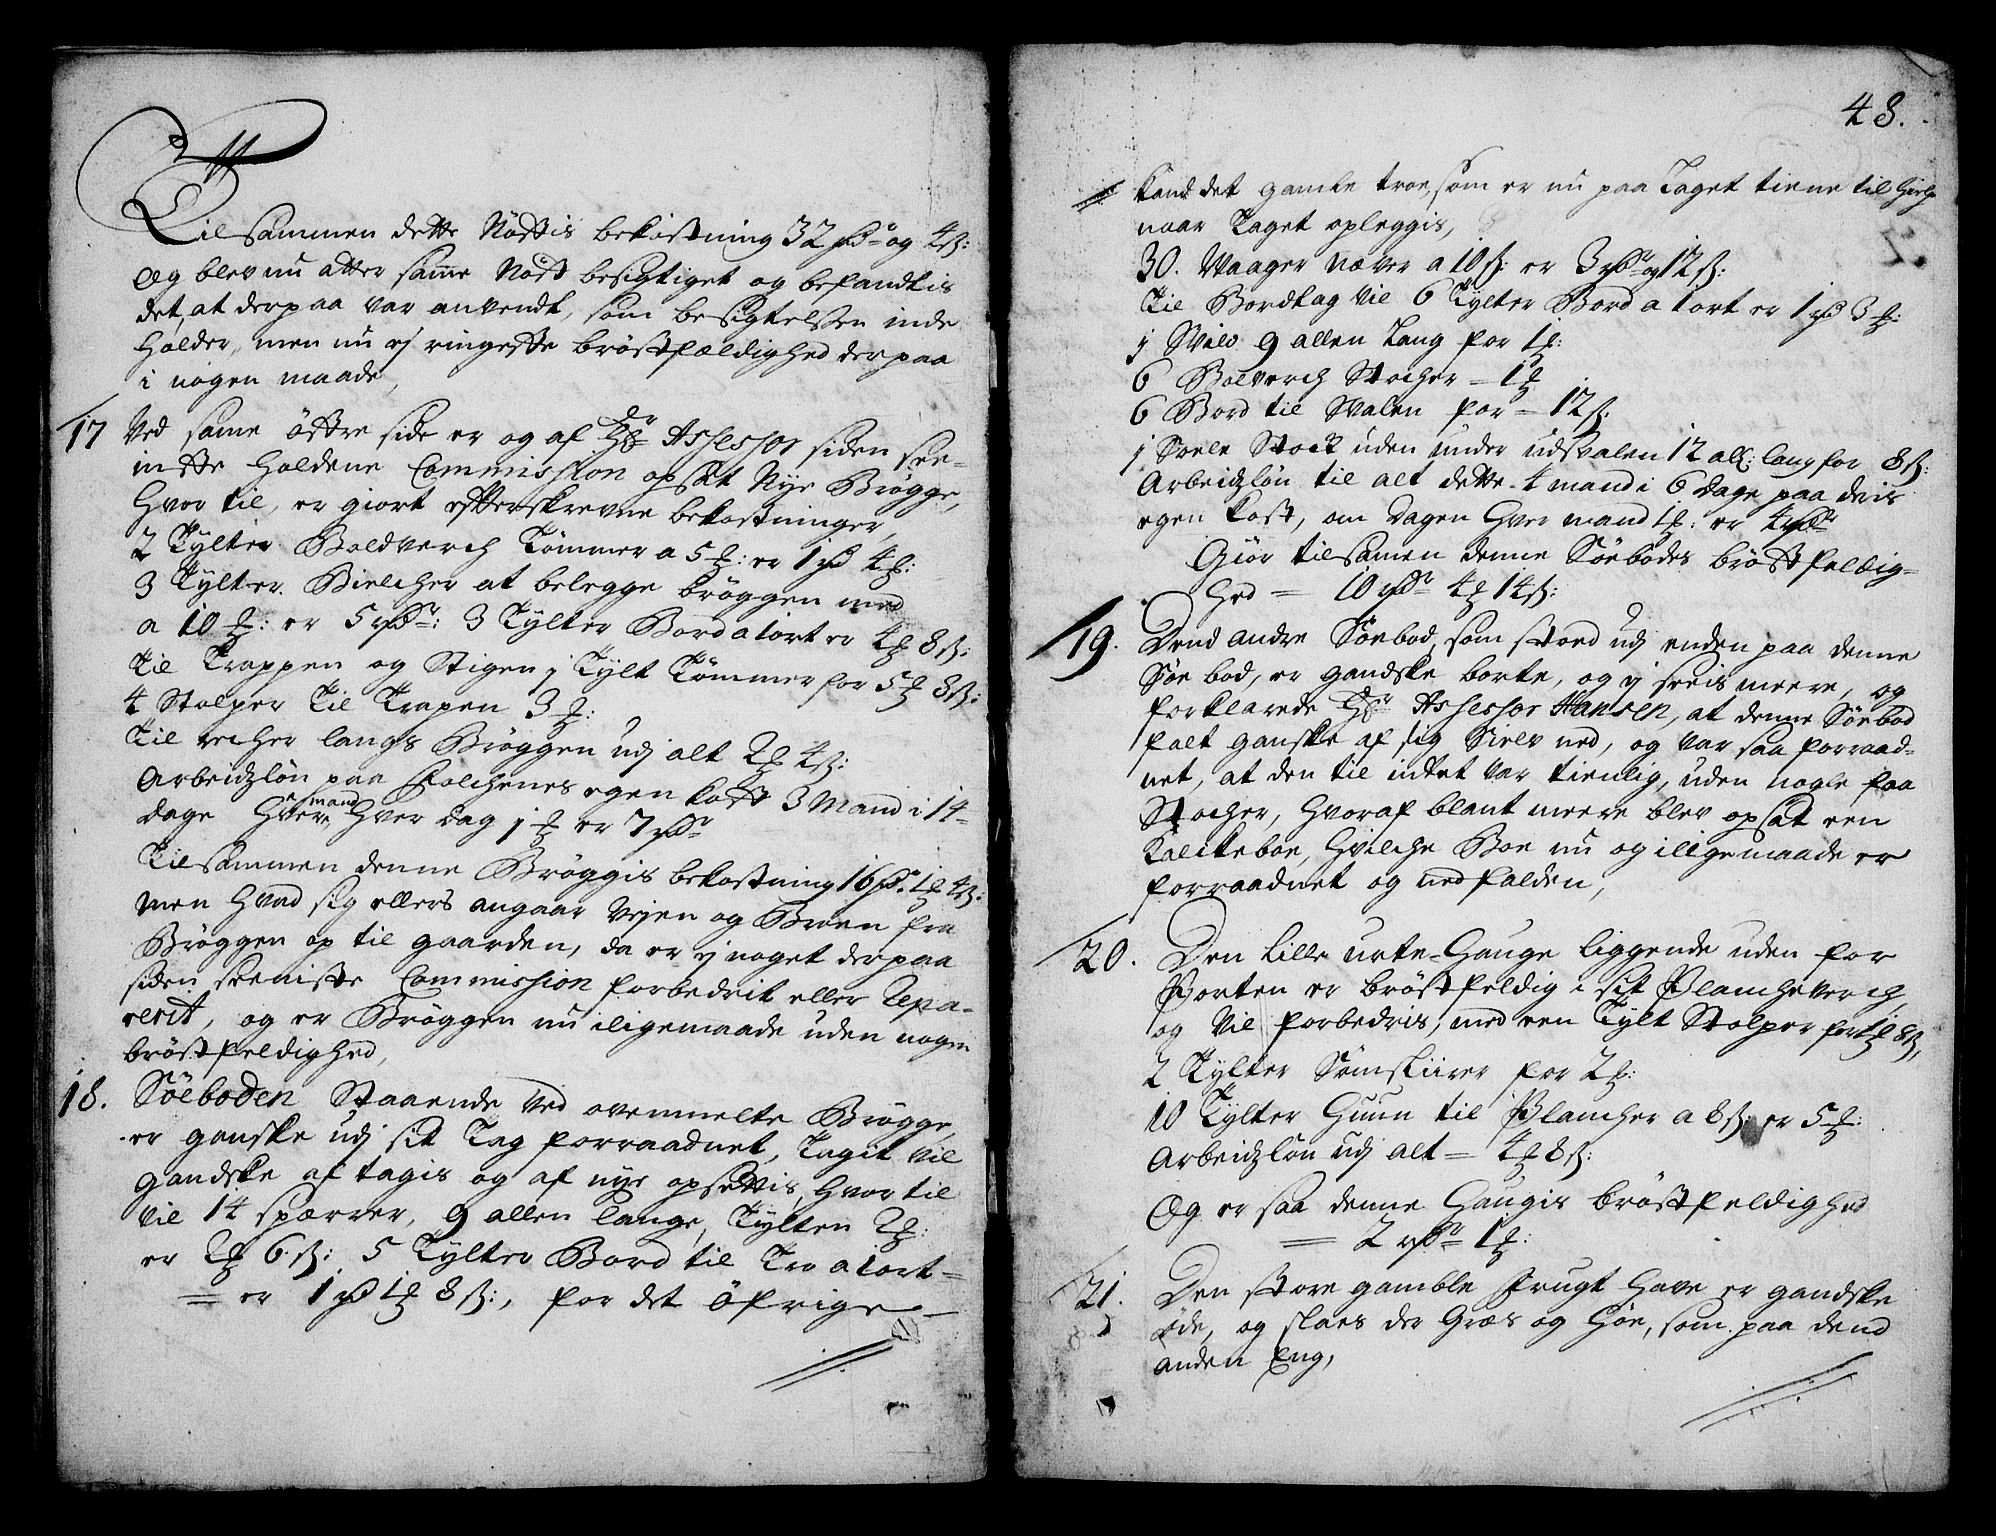 Tilsammen dette Nøstis bekostning 32 rdr og 4 ß:
Og blev nu atter samme Nøst besigtiget og befandtis
det, at derpaa var anvendt, som besigtelsen inde
holder, men nu ej ringeste brøstfældighed derpaa
i nogen maade,
17 Ved same östre side er og af Hr Assessor siden see-
niste holdene Commission opsat Nye Brögge,
hvor til, er giort efterskrevne bekostninger,
2 Tylter Boldverch Tömmer a 5 : er 1 rd 4 :
3 Tylter Bielcher at belegge bröggen med
a 10 : er 5 rdr: 3 Tylter Bord a 1 ort er 4 8 ß:
Til Trappen og Stigen j Tylt Tömmer for 5 8 ß:
4 Stolper til Trapen 3 :
Til recher langs Bröggen udj alt 2 4 ß:
Arbeidzlön paa folchenes egen kost 3 Mand i 14-
dage hver mand hver dag j er 7 rdr
Tilsammen denne Bröggis bekostning 16 rdr 1 4 ß:
Men hvad sig ellers angaar Vejen og Broen fra
Bröggen op til gaarden, da er ej noget derpaa
siden seeniste Commission forbedrit eller Repa-
rerit, og er Bröggen nu iligemaade uden nogen
bröstfeldighed,
18. Söeboden Staaende ved ovenmelte Brögge,
er ganske udj sit Tag forraadnet, Tagit vil
gandske af tagis og af nye opsettis, hvor til
vil 14 spærrer, 9 allen lange, Tylten 2 :
er 2 6 ß: 5 Tylter Bord til Tro a 1 ort =
= er 1 rd 1 8 ß:, for det öfrige
48.
kand det gamle troe, som er nu paa Taget tiene til hielp
naar Taget opleggis,
30. Waager Næver a 10 ß: er 3 rdr og 12 ß:
Til Bordtag vil 6 Tylter Bord a 1 ort er 1 rd 3 :
j Svill 9 allen Lang for 1 :
6 Bolverch Stocher = 1
6 Bord til Svalen for = 12 ß:
j Svele Stock uden under udsvalen 12 all: lang for 8 ß:
Arbeidzlön til alt dette 4 mand i 6 dage paa deris
egen kost, om dagen hver mand 1 : er 4 rdr
Giör tilsamen denne Söebodes bröstfeldig-
hed = 10 rdr 4 14 ß:
19. Dend andre Söebod, som stoed udj enden paa denne
Söe bod, er gandske borte, og ej seeis meere, og
forklarede Hr Assessor Hansen, at denne Söebod
falt ganske af sig Sielv ned, og var saa forraad-
net, at den til intet var tienlig, uden nogle faa
Stocher, hvoraf blant meere blev opsat een
Kalckeboe, hvilche Boe nu og iligemaade er
forraadnet og nedfalden,
20. Den lille urte-Hauge liggende uden for
Porten er bröstfeldig i sit Plancheverch,
og vil forbedris, med een Tylt Stolper for 1 8 ß,
2 Tylter Sömskiirer for 2 :
10 Tylter Huun til Plancher a 8 ß: er 5 :
Arbeidzlön udj alt = 4 8 ß:
Og er saa denne Haugis bröstfeldighed
= 2 rdr 1 :
21. Den store gamble Frugt Have er gandske
öde, og slaes der Græs og Höe, som paa dend
anden Eng,